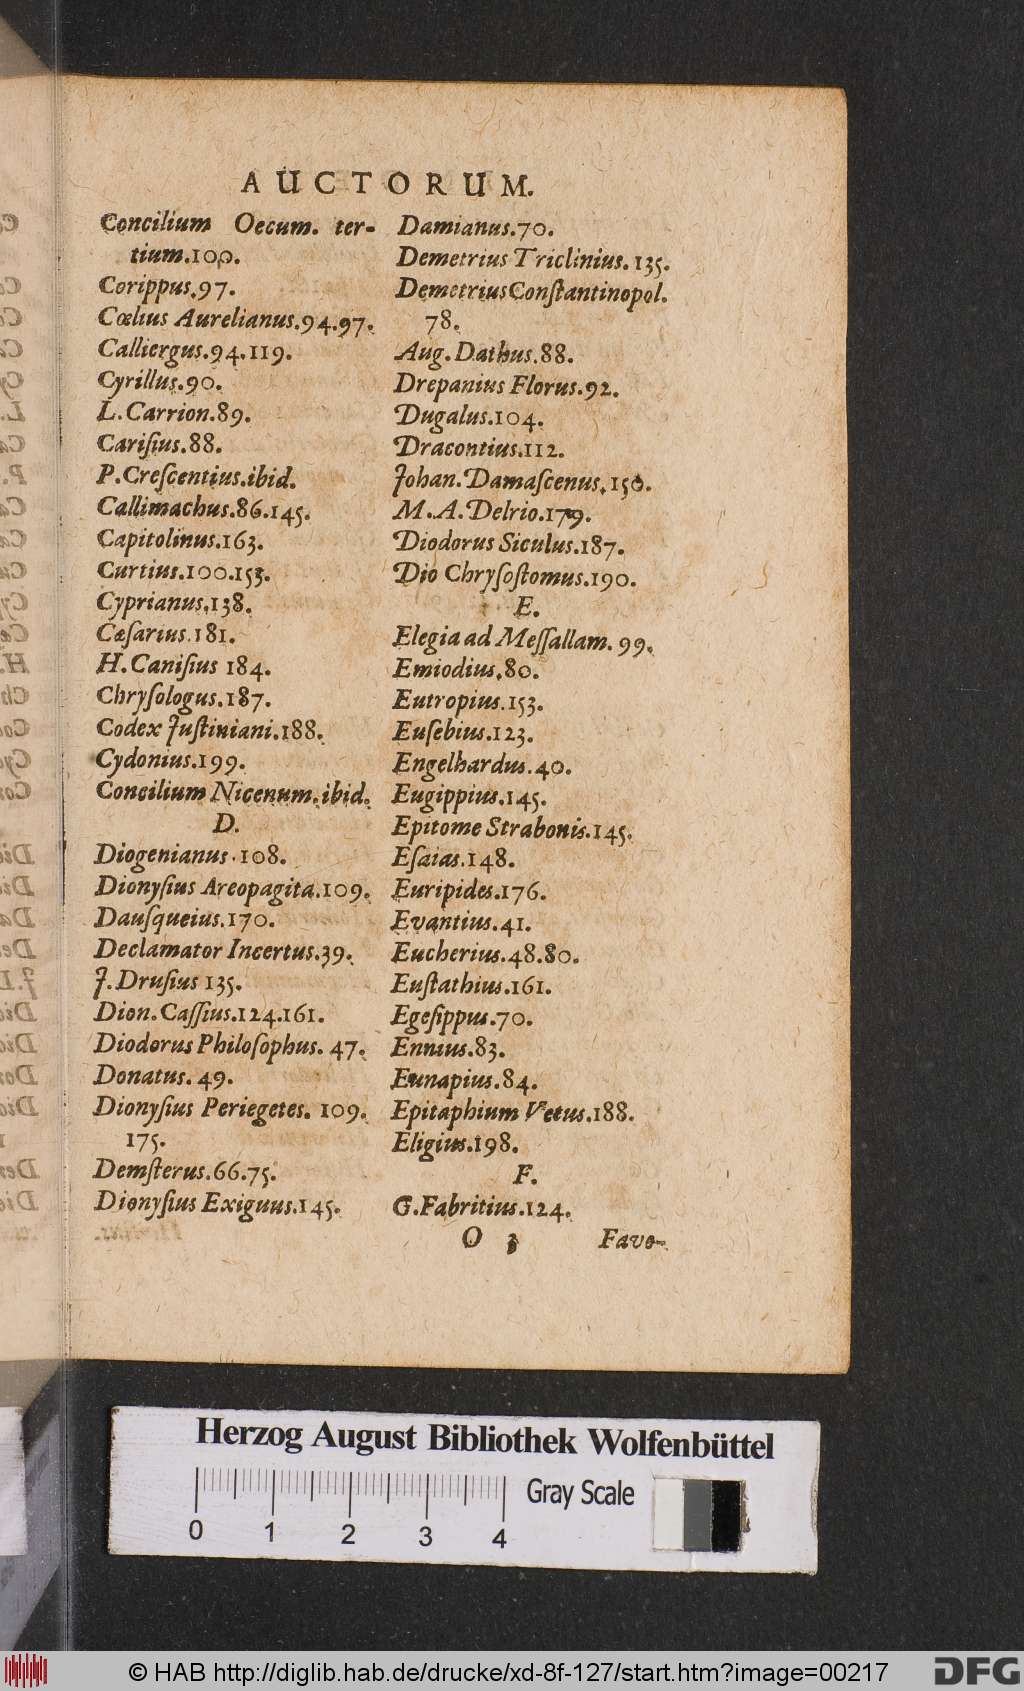 AUCTORUM.
Concilium Oecum. ter-
tium.100.
Corippus.97.
Cœlius Aurelianus.94.97.
Calliergus.94.119.
Cyrillus.90.
L.Carrion.89.
Carisius.88.
P.Crescentius.ibid.
Callimachus.86.145.
Capitolinus.163.
Curtius.100.153.
Cyprianus.138.
Cæsarius.181.
H.Canisius 184.
Chrysologus.187.
Codex Justiniani.188.
Cydonius.199.
Concilium Nicenum.ibid.
D.
Diogenianus.108.
Dionysius Areopagita.109.
Dausqueius.170.
Declamator Incertus.39.
J.Drusius 135.
Dion.Cassius.124.161.
Diodorus Philosophus. 47.
Donatus. 49.
Dionysius Periegetes. 109.
175.
Demsterus.66.75.
Dionysius Exiguus.145.
Damianus.70.
Demetrius Triclinius.135.
Demetrius Constantinopol.
78.
Aug.Dathus.88.
Drepanius Florus.92.
Dugalus.104.
Dracontius.112.
Johan.Damascenus.150.
M.A.Delrio.179.
Diodorus Siculus.187.
Dio Chrysostomus.190.
E.
Elegia ad Messallam. 99.
Emiodius.80.
Eutropius.153.
Eusebius.123.
Engelhardus.40.
Eugippius.145.
Epitome Strabonis.145.
Esaias.148.
Euripides.176.
Evantius.41.
Eucherius.48.80.
Eustathius.161.
Egesippus.70.
Ennius.83.
Eunapius.84.
Epitaphium Vetus.188.
Eligius.198.
F.
G.Fabritius.124.
O 3 Favo-
Herzog August Bibliothek Wolfenbüttel
Gray Scale
0 1 2 3 4
© HAB http://diglib.hab.de/drucke/xd-8f-127/start.htm?image=00217
DFG